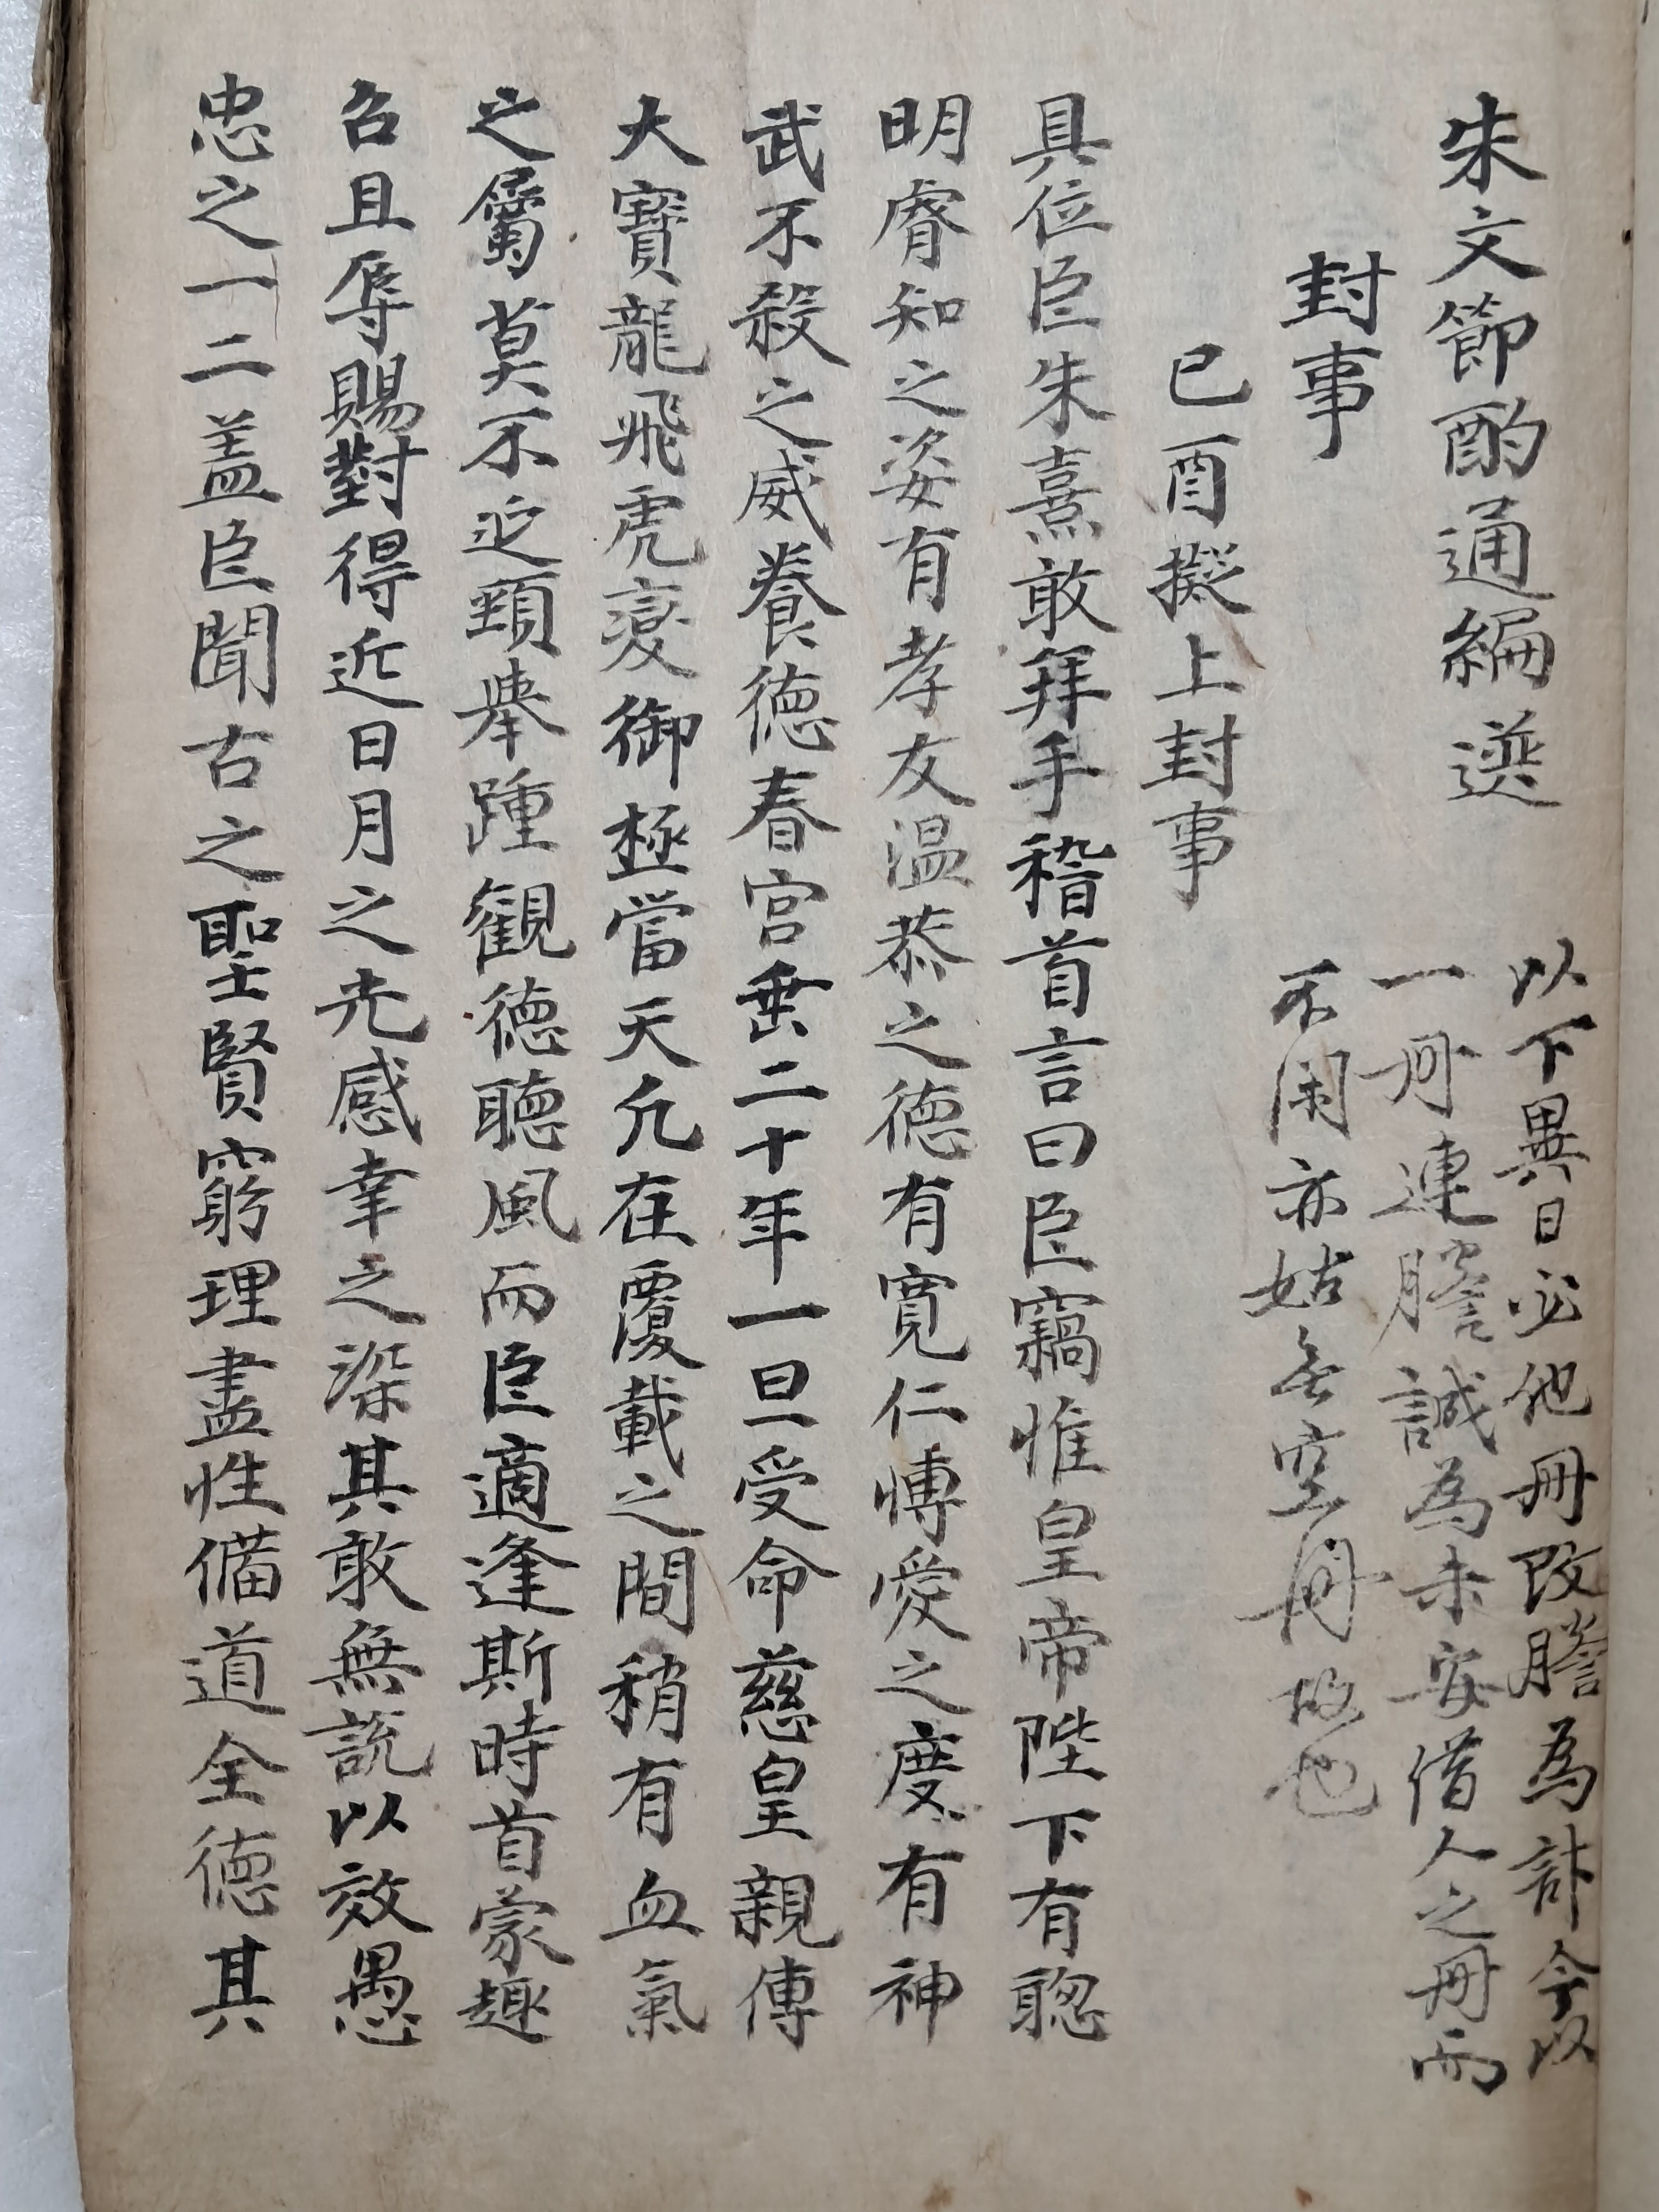 朱文節酌通編選
以下異日必他冊改謄為計今以
一冊連謄誠為未安借人之冊而
不閑亦姑無空冊故也
封事
己酉擬上封事
具位臣朱熹敢拜手稽首言曰臣竊惟皇帝陛下有聡
明睿知之姿有孝友温恭之德有寬仁博愛之度有神
武不殺之威養德春宮垂二十年一旦受命慈皇親傳
大寶龍飛虎變御極當天凡在覆載之間稍有血氣
之屬莫不延頸舉踵觀德聽風而臣適逢斯時首蒙趣
召且辱賜對得近日月之光感幸之深其敢無說以效愚
忠之一二盖臣聞古之聖賢窮理盡性備道全德其